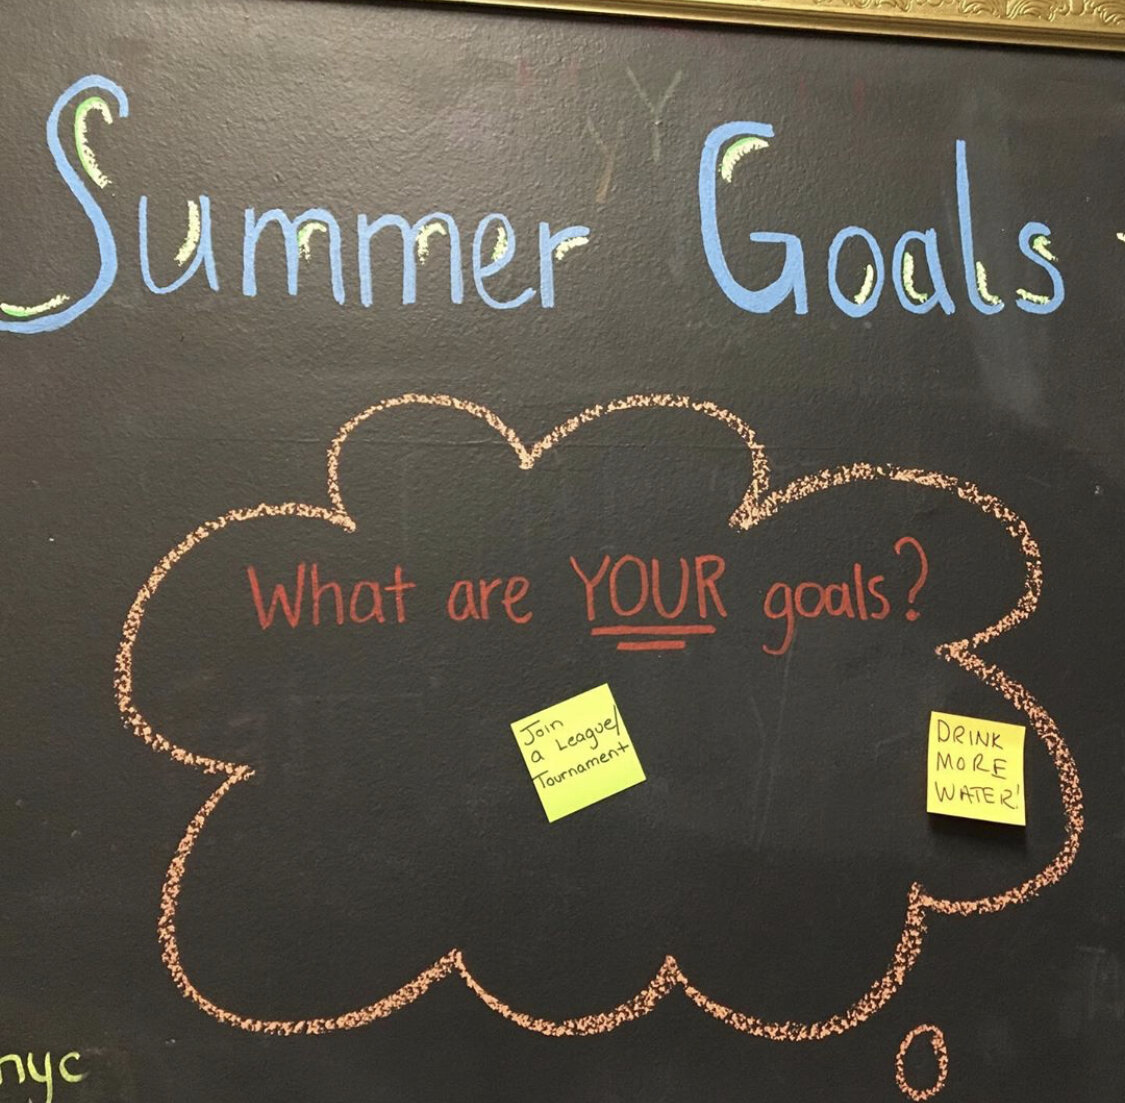 Summer Goals
What are YOUR goals?
Join
a League/
Tournament
DRINK
MORE
WATER!
nyc